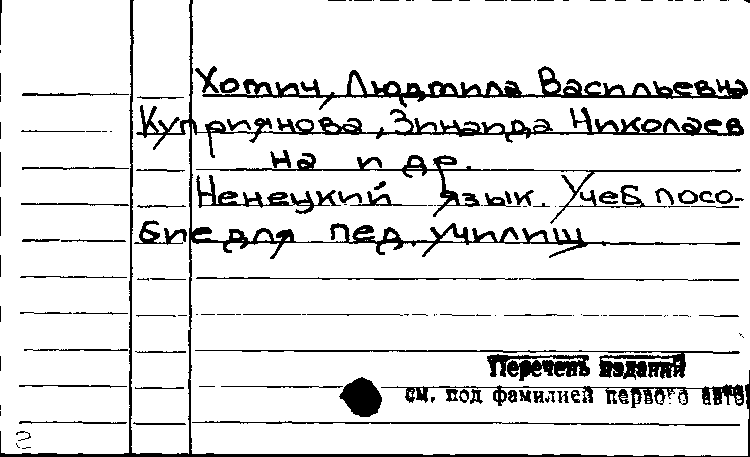 Хомич, Людмила Васильевна
Куприянова, Зинаида Николаев
на и др.
Ненецкий язык. Учеб. посо-
бие для пед. училищ.
Перечень изданий
см. под фамилией первого авто
2